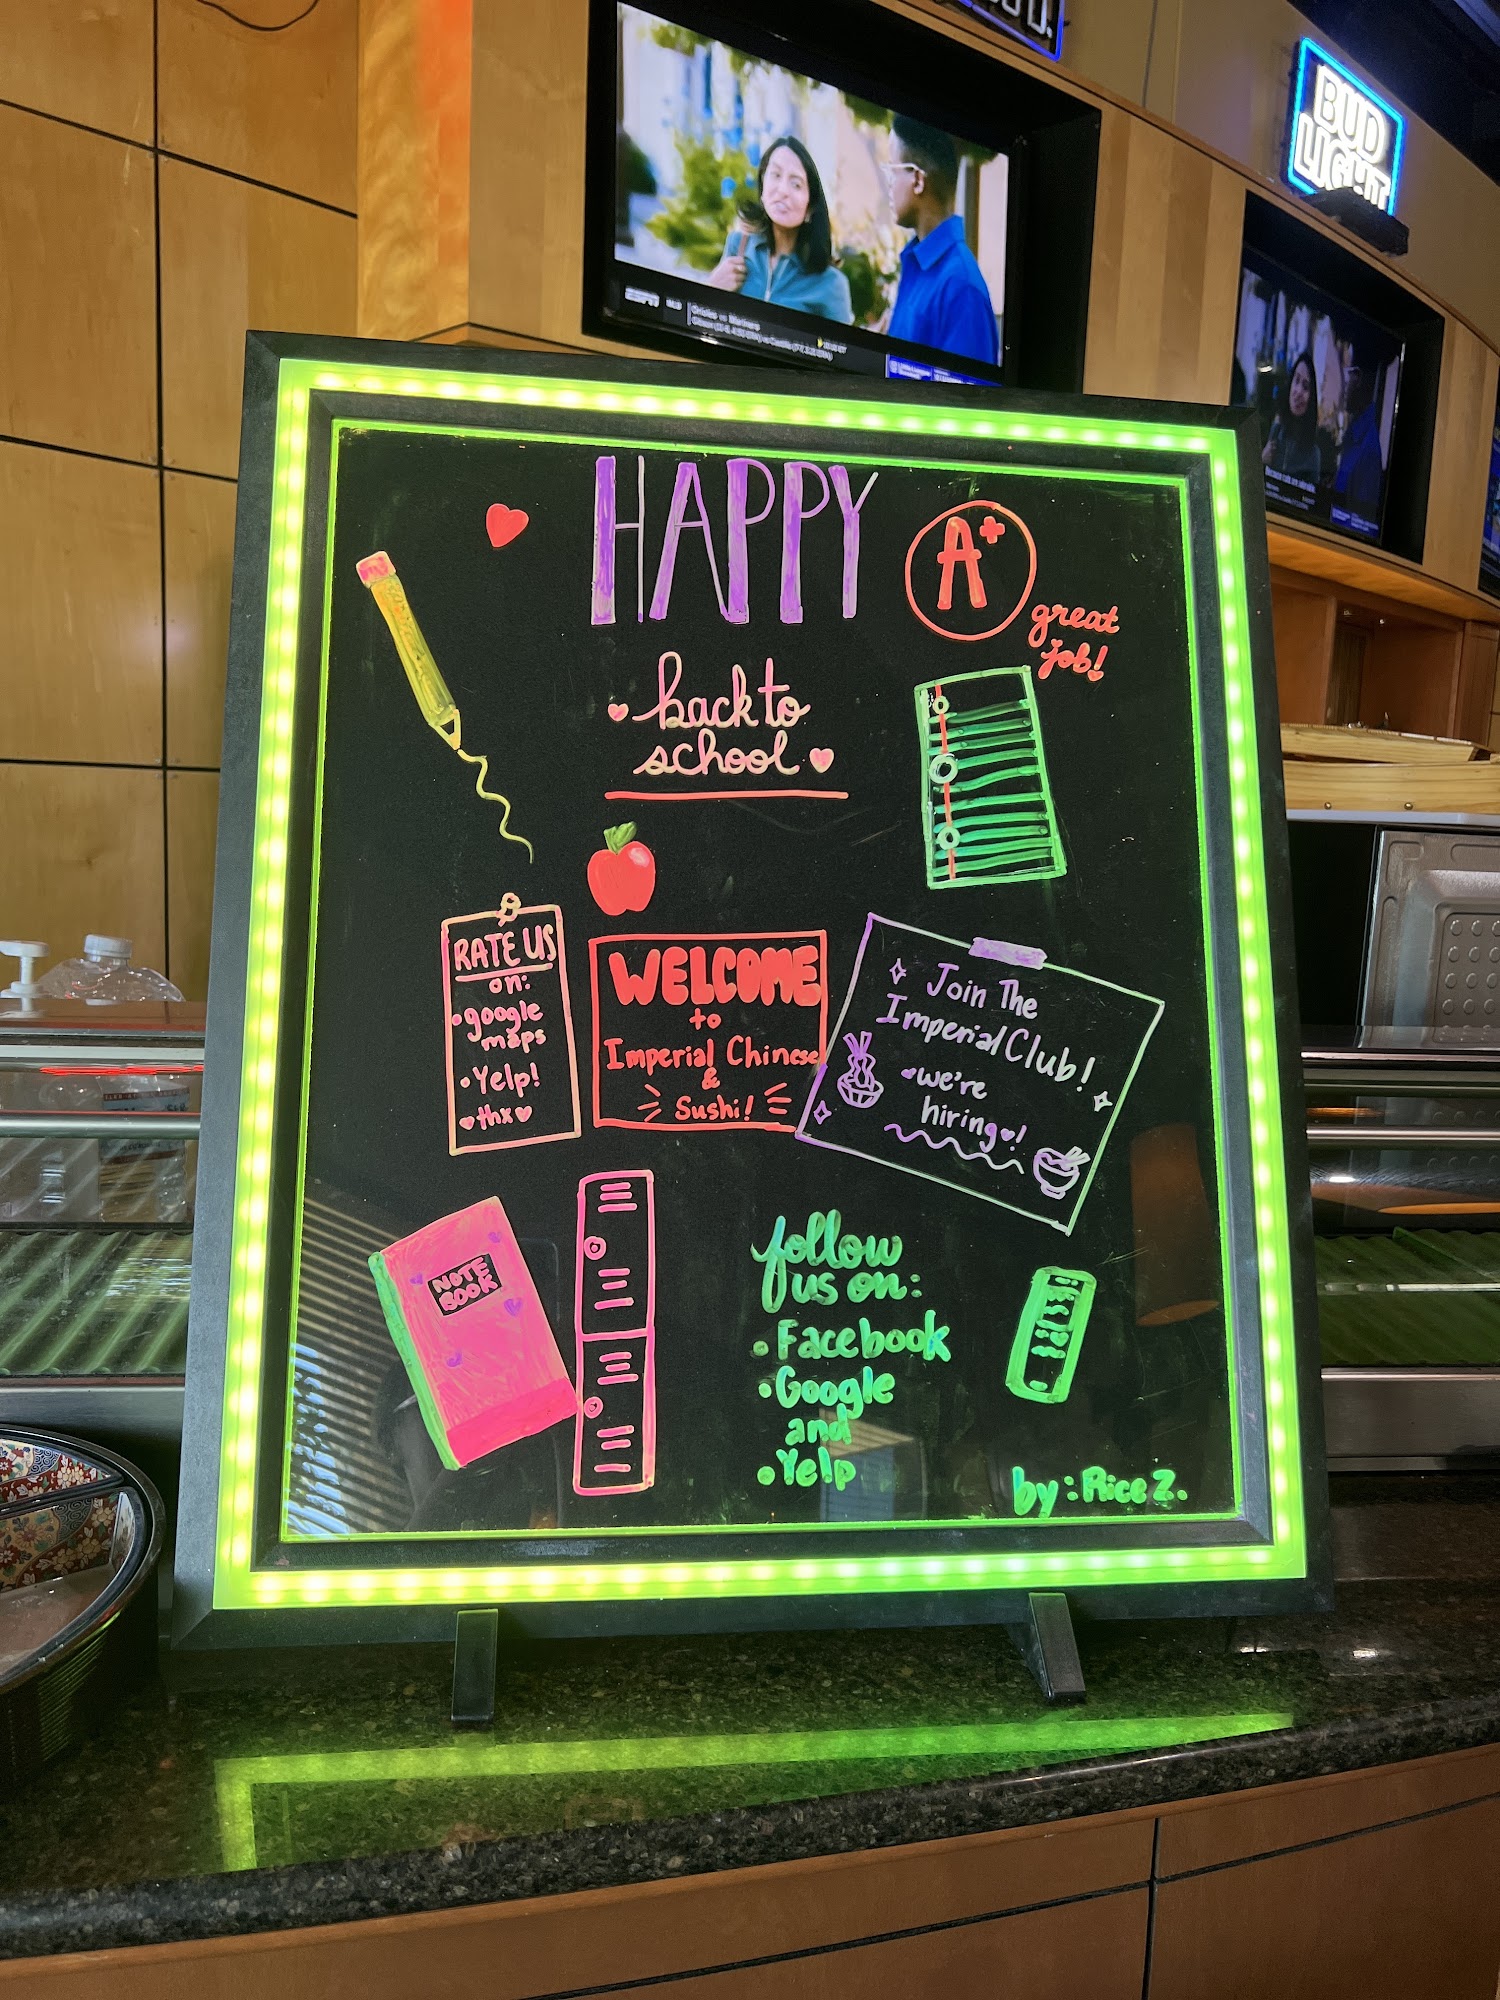 BUD
LIGHT
ESPN
HAPPY
A+
great
job!
back to
school
RATE US
on:
•google
maps
•Yelp!
thx
WELCOME
to
Imperial Chinese
&
Sushi!
Join The
Imperial Club!
we're
hiring!
NOTE
BOOK
follow
us on:
•Facebook
•Google
and
•Yelp
by: Rice Z.